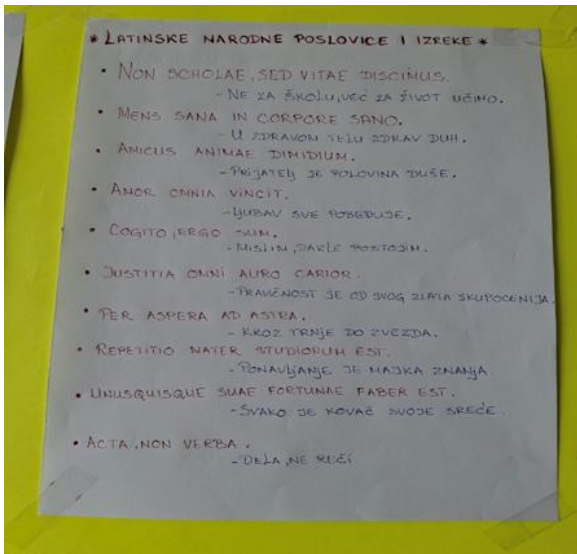 * LATINSKE NARODNE POSLOVICE I IZREKE *
• NON SCHOLAE, SED VITAE DISCIMUS.
- NE ZA ŠKOLU, VEĆ ZA ŽIVOT UČIMO.
• MENS SANA IN CORPORE SANO.
- U ZDRAVOM TELU ZDRAV DUH.
• AMICUS ANIMAE DIMIDIUM.
- PRIJATELJ JE POLOVINA DUŠE.
• AMOR OMNIA VINCIT.
- LJUBAV SVE POBEĐUJE.
• COGITO, ERGO SUM.
- MISLIM, DAKLE POSTOJIM.
• JUSTITIA OMNI AURO CARIOR.
- PRAVIČNOST JE OD SVOG ZLATA SKUPOCENIJA.
• PER ASPERA AD ASTRA.
- KROZ TRNJE DO ZVEZDA.
• REPETITIO MATER STUDIORUM EST.
- PONAVLJANJE JE MAJKA ZNANJA
• UNUSQUISQUE SUAE FORTUNAE FABER EST.
- SVAKO JE KOVAČ SVOJE SREĆE.
• ACTA, NON VERBA.
- DELA, NE REČI